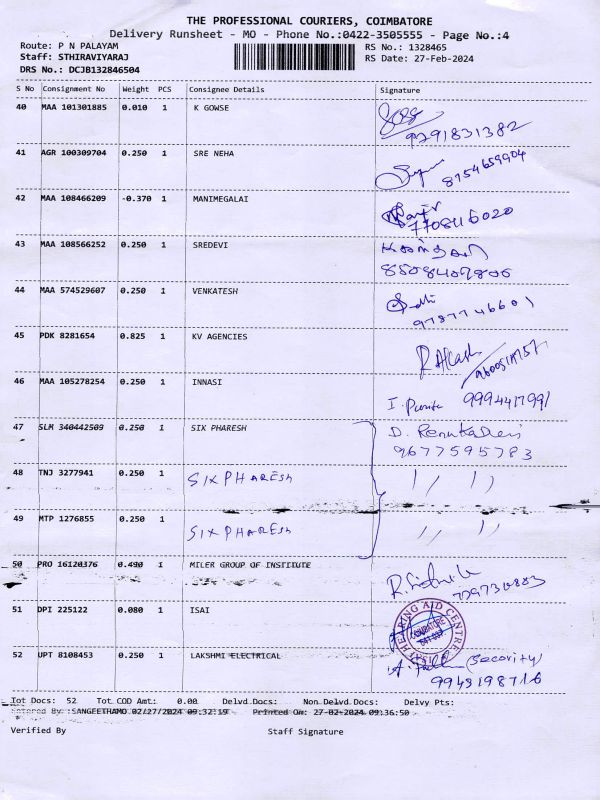 THE PROFESSIONAL COURIERS, COIMBATORE
Delivery Runsheet - MO - Phone No.:0422-3505555 - Page No.:4
Route: P N PALAYAM
RS No.: 1328465
Staff: STHIRAVIYARAJ
RS Date: 27-Feb-2024
DRS No.: DCJB132846504
S No Consignment No Weight PCS Consignee Details Signature
40 MAA 101301885 0.010 1 K GOWSE
9791831382
41 AGR 100309704 0.250 1 SRE NEHA
8754659904
42 MAA 108466209 -0.370 1 MANIMEGALAI
7708416020
43 MAA 108566252 0.250 1 SREDEVI
8508409806
44 MAA 574529607 0.250 1 VENKATESH
9787746601
45 PDK 8281654 0.825 1 KV AGENCIES
46 MAA 105278254 0.250 1 INNASI
I. 9994417991
47 SLM 340442509 0.250 1 SIX PHARESH
D. Renukadevi
9677595783
48 TNJ 3277941 0.250 1 SIX PHARESH
49 MTP 1276855 0.250 1 SIX PHARESH
50 PRO 16120376 0.490 1 MILER GROUP OF INSTITUTE
51 DPI 225122 0.080 1 ISAI
HEARING AID CENTRE
COIMBATORE
52 UPT 8108453 0.250 1 LAKSHMI ELECTRICAL
(Security)
9943198716
Tot Docs: 52 Tot COD Amt: 0.00 Delvd Docs: Non Delvd Docs: Delvy Pts:
Entered By :SANGEETHAMO 02/27/2024 09:32:19 Printed On: 27-02-2024 09:36:50
Verified By Staff Signature